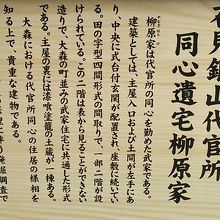 石見銀山代官所
同心遺宅柳原家
柳原家は代官所の同心を勤めた武家である。
建築としては、主屋入口および土間が左手にあ
り、中央に式台付玄関が配置され、座敷に続いてい
る。田の字型四間形式の間取りで、一部二階が設
けられている。この二階は表から見ることができない
造りで、大森の町並みの武家住宅に共通した形式
である。主屋の裏には漆喰塗籠の土蔵が一棟ある。
大森における代官所同心の住居の様相を
知る上で、貴重な建物である。